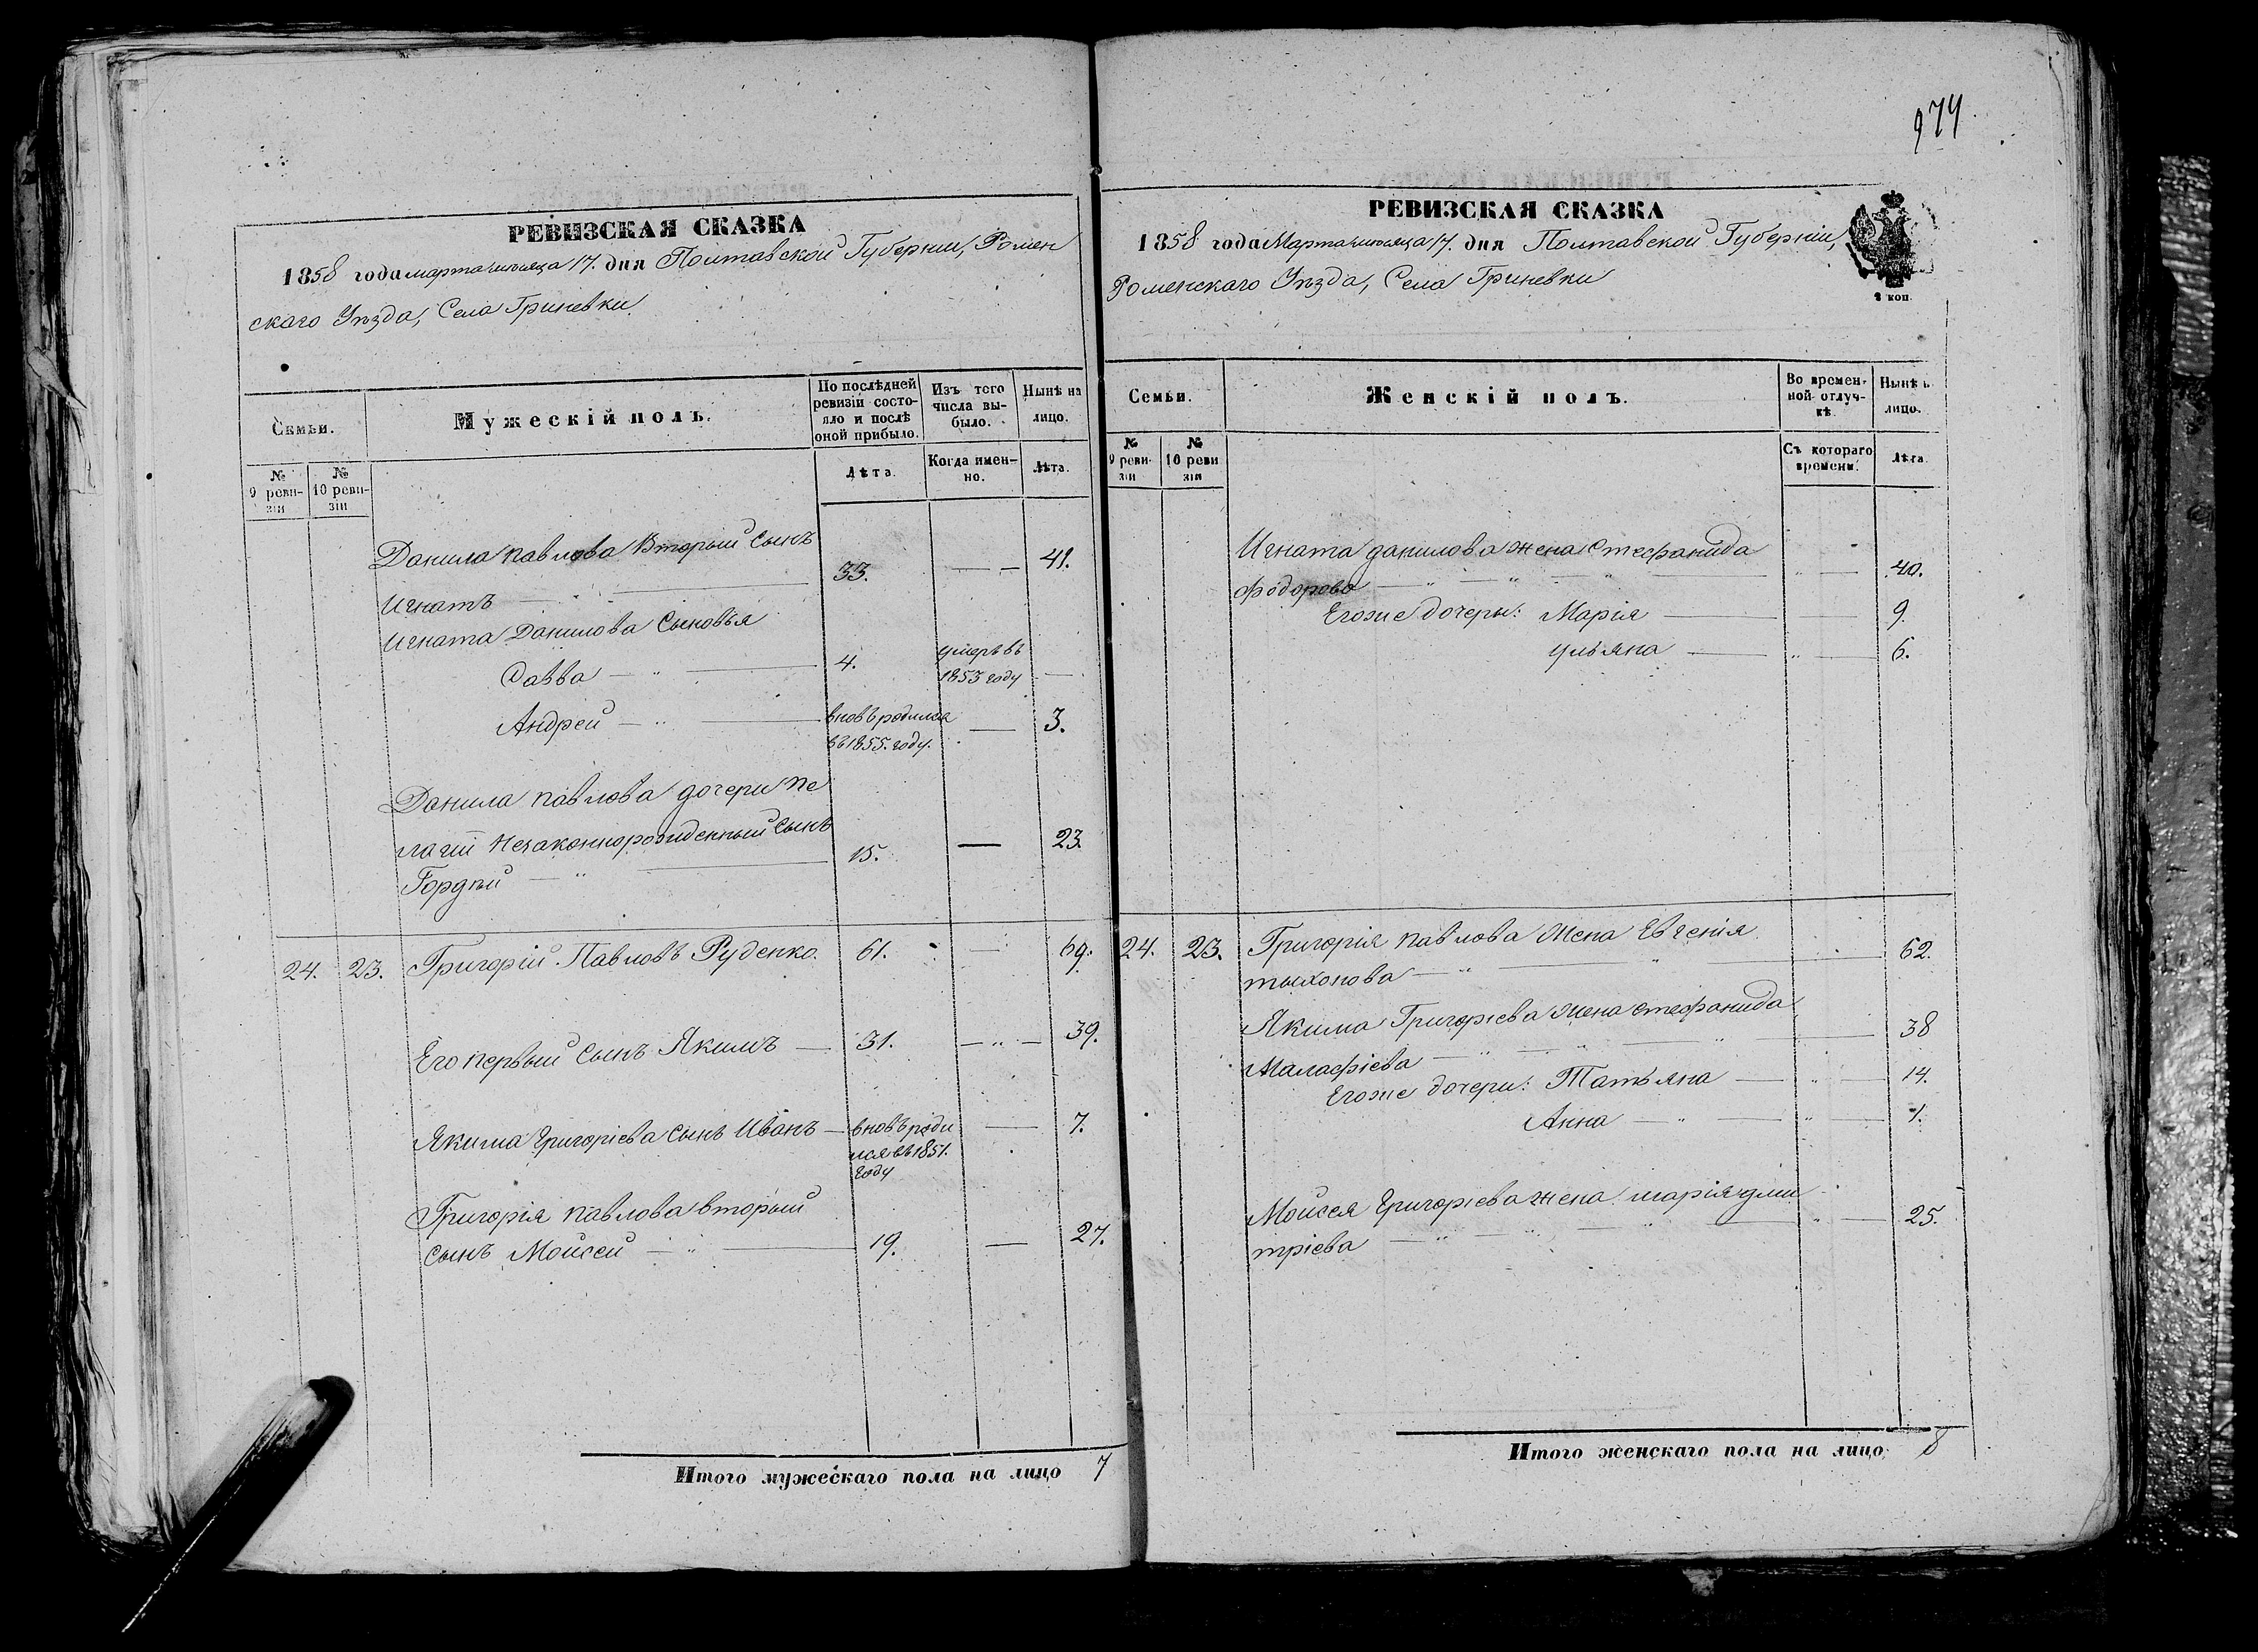 974
РЕВИЗСКАЯ СКАЗКА
1858 года марта месяца 17. дня Полтавской Губерніи, Ромен
скаго Уѣзда, Села Гриневки
Семьи.
Мужескій полъ.
По послѣдней
ревизіи состо-
яло и послѣ
оной прибыло.
Изъ того
числа вы-
было.
Нынѣ на
лицо.
№
9 реви-
зіи
№
10 реви-
зіи
Лѣта.
Когда имен-
но.
Лѣта.
Данила Павлова Вторый Сынъ
Игнатъ 33. 41.
Игната Данилова Сыновья
Савва 4. умеръ въ
1853 году
Андрей вновь родился 3.
въ 1855. году.
Данила Павлова дочери Пе
лагіи Незаконнорожденный Сынъ
Гордѣй 15. 23
24. 23. Григорій Павловъ Руденко. 61. 69.
Его первый Сынъ Якимъ 31. 39.
Якима Григоріева Сынъ Иванъ вновь роди 7.
лся въ 1851.
году
Григорія Павлова вторый
Сынъ Моисей 19. 27.
Итого мужескаго пола на лицо 7
РЕВИЗСКАЯ СКАЗКА
1858 года Марта месяца 17. дня Полтавской Губерніи,
Роменскаго Уѣзда, Села Гриневки
2 коп.
Семьи.
Женскій полъ.
Во времен-
ной отлуч-
кѣ.
Нынѣ н
лицо.
№
9 реви-
зіи
№
10 реви
зіи
Съ котораго
времени.
Лѣта.
Игната Данилова жена Стефанида
Фодорова 40.
Егоже дочеры: Марія 9.
Ульяна 6.
24. 23. Григорія Павлова Жена Евгенія
Тыхонова 62.
Якима Григоріева Жена Стефанида
Малафіева 38
Егоже дочери: Татьяна 14.
Анна 1.
Моисея Григоріева жена Марія Дми
тріева 25.
Итого женскаго пола на лицо 8